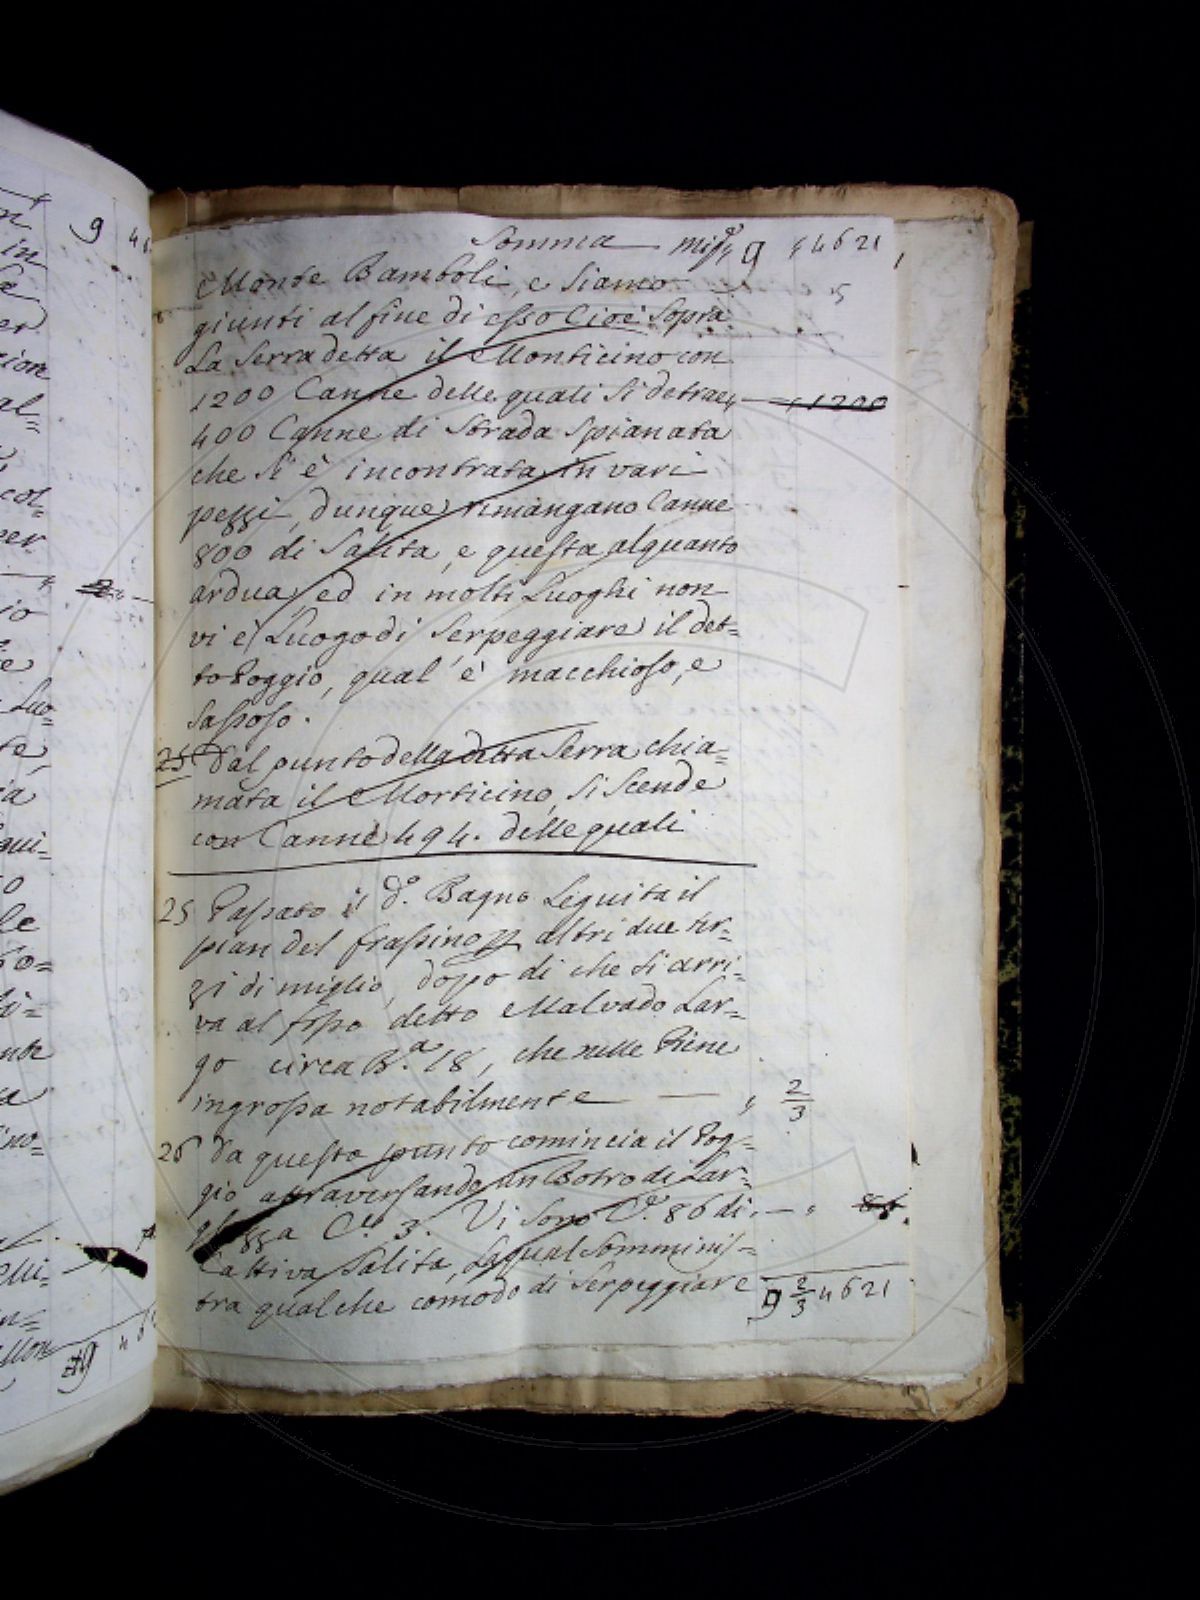 Somma migª 9 4621
Monte Bamboli, e Siamo
giunti al fine di esso Cioè Sopra
La Serra detta il Monticino con
1200 Canne delle quali Si detrae, — 1200
400 Canne di Strada Spianata
che Si è incontrata in vari
pezzi, dunque rimangano Canne
800 di Salita, e questa alquanto
ardua, ed in molti Luoghi non
vi è Luogo di Serpeggiare il det=
to Poggio, qual' è macchioso, e
Sassoso.
25 Dal punto della detta Serra chia=
mata il Morticino, Si Scende
con Canne 494. delle quali
25 Passato il dº. Bagno Seguita il
pian del frassino altri due ter=
zi di miglio, dopo di che Si arri=
va al fosso detto Malvado Lar=
go circa Bª. 18, che nelle Piene
ingrossa notabilmente — 2/3
26 Da questo punto comincia il Pog=
gio attraversando un Botro di Lar=
ghezza Cº. 3. Vi Sono Cº. 86 di — 86.
Cattiva Salita, La qual Somminis=
tra qualche comodo di Serpeggiare
9 2/3 4621